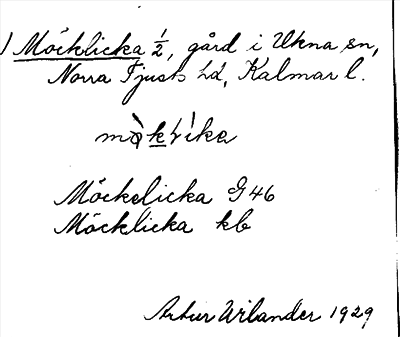 Möcklicka 1/2, gård i Ukna sn,
Norra Tjusts hd, Kalmar l.
Möckelicka G 46
Möcklicka kb
Artur Wilander 1929